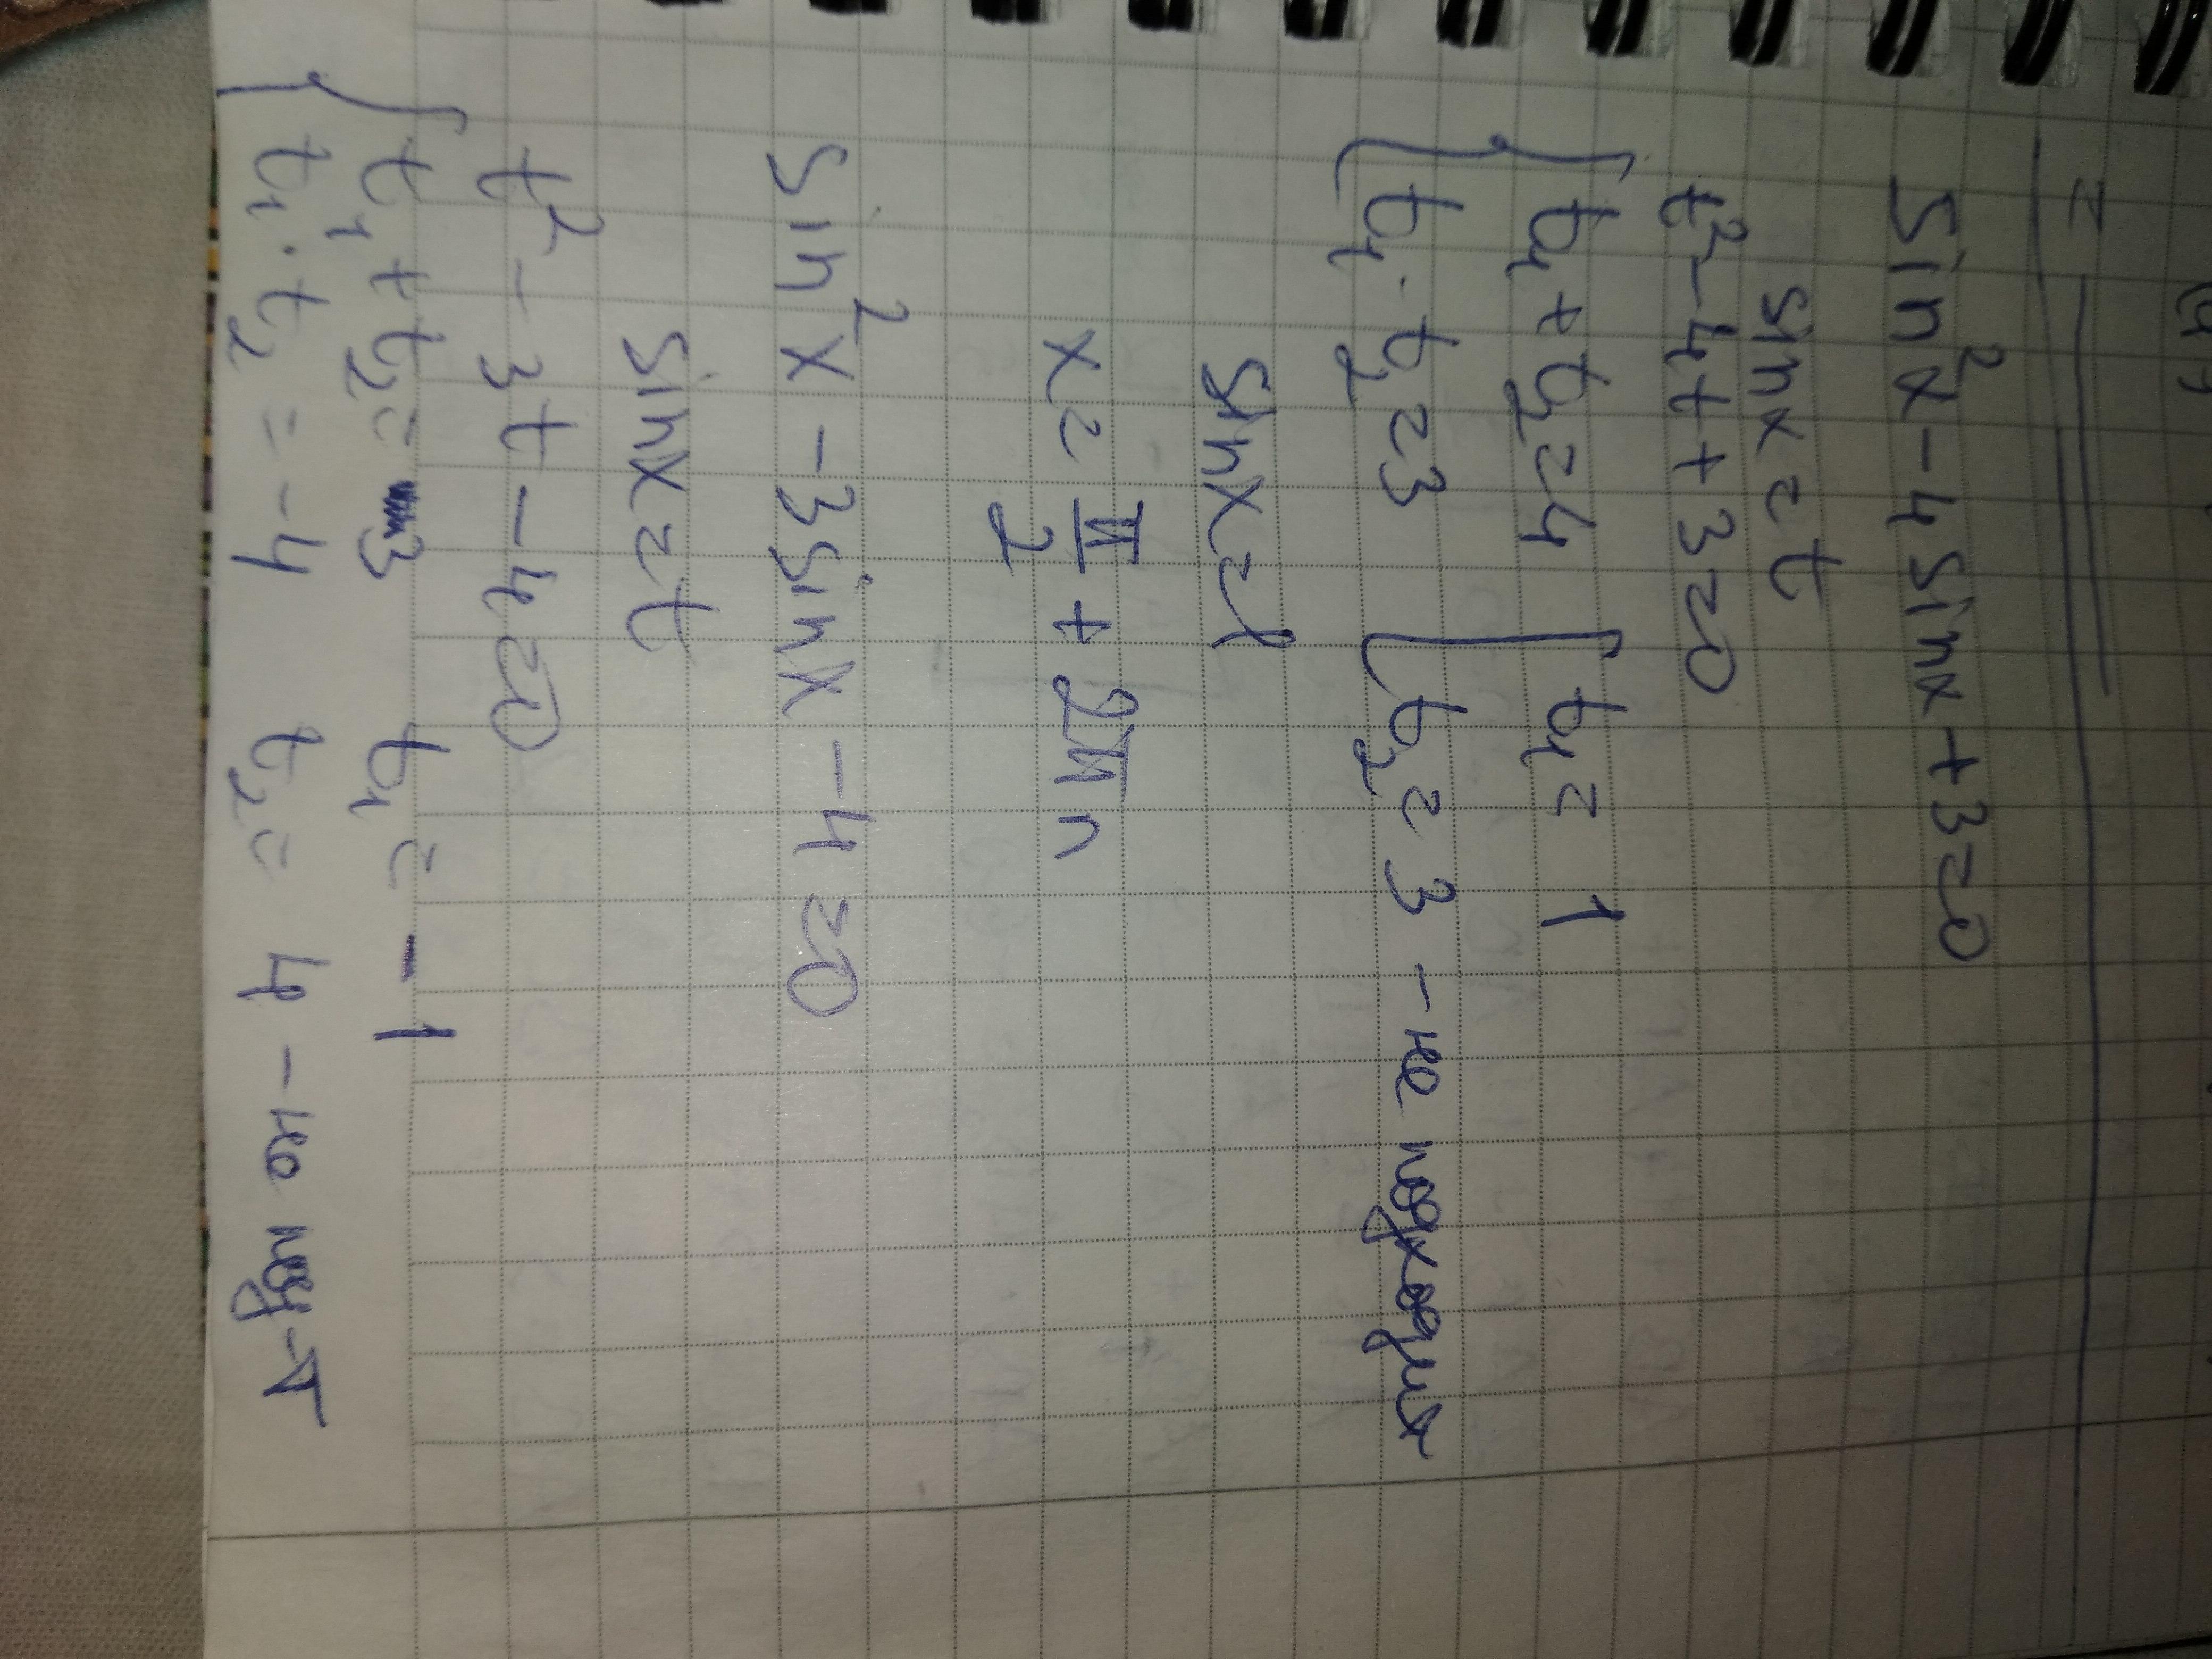 =
sin²x - 4 sinx + 3 = 0
sinx = t
t² - 4t + 3 = 0
{ t₁ + t₂ = 4 [ t₁ = 1
t₁ · t₂ = 3 t₂ = 3 - не подходит
sinx = 1
x = π/2 + 2πn
sin²x - 3 sinx - 4 = 0
sinx = t
t² - 3t - 4 = 0
{ t₁ + t₂ = 3 t₁ = -1
t₁ · t₂ = -4 t₂ = 4 - не под-т